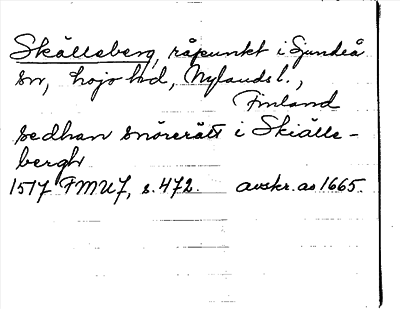 Skällsberg, råpunkt i Sjundeå
sn, Lojo hd, Nylands l.,
Finland
sedhan snörerätt i Skiälle-
bergh
1517 FMU 7, s. 472. avskr. av 1665.